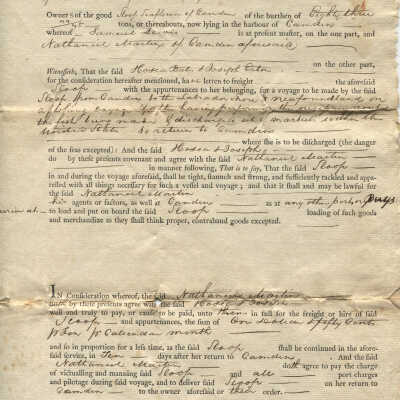 Owners of the good Sloop of Camden of the burthen of Eighty three
tons, or thereabouts, now lying in the harbour of Camden
whereof Samuel is at present master, on the one part, and
Nathaniel Martin of Camden aforesaid
on the other part,
Witnesseth, That the said Hosea Bates & Joseph Eaton
for the consideration hereafter mentioned, have letten to freight the aforesaid
Sloop with the appurtenances to her belonging, for a voyage to be made by the said
Sloop from Camden to the Labrador shore & Newfoundland on
the
being made & discharge at a market within the
United States & return to Camden
where she is to be discharged (the danger
of the seas excepted): And the said Hosea & Joseph
do by these presents covenant and agree with the said Nathaniel Martin
in manner following, That is to say, That the said Sloop
in and during the voyage aforesaid, shall be tight, staunch and strong, and sufficiently tackled and appa-
relled with all things necessary for such a vessel and voyage; and that it shall and may be lawful for
the said Nathaniel Martin
his agents or factors, as well at Camden as at any other port or Bays
to load and put on board the said Sloop loading of such goods
and merchandize as they shall think proper, contraband goods excepted.
IN Consideration whereof, the said Nathaniel Martin
doth by these presents agree with the said Hosea & Joseph
well and truly to pay, or cause to be paid, unto them in full for the freight or hire of said
Sloop and appurtenances, the sum of One Dollar & fifty Cents
Ton Calendar month
and so in proportion for a less time, as the said Sloop shall be continued in the afore-
said service, in Ten days after her return to Camden And the said
Nathaniel Martin doth agree to pay the charge
of victualling and manning said Sloop and all port charges
and pilotage during said voyage, and to deliver said Sloop on her return to
Camden to the owner aforesaid or their order.